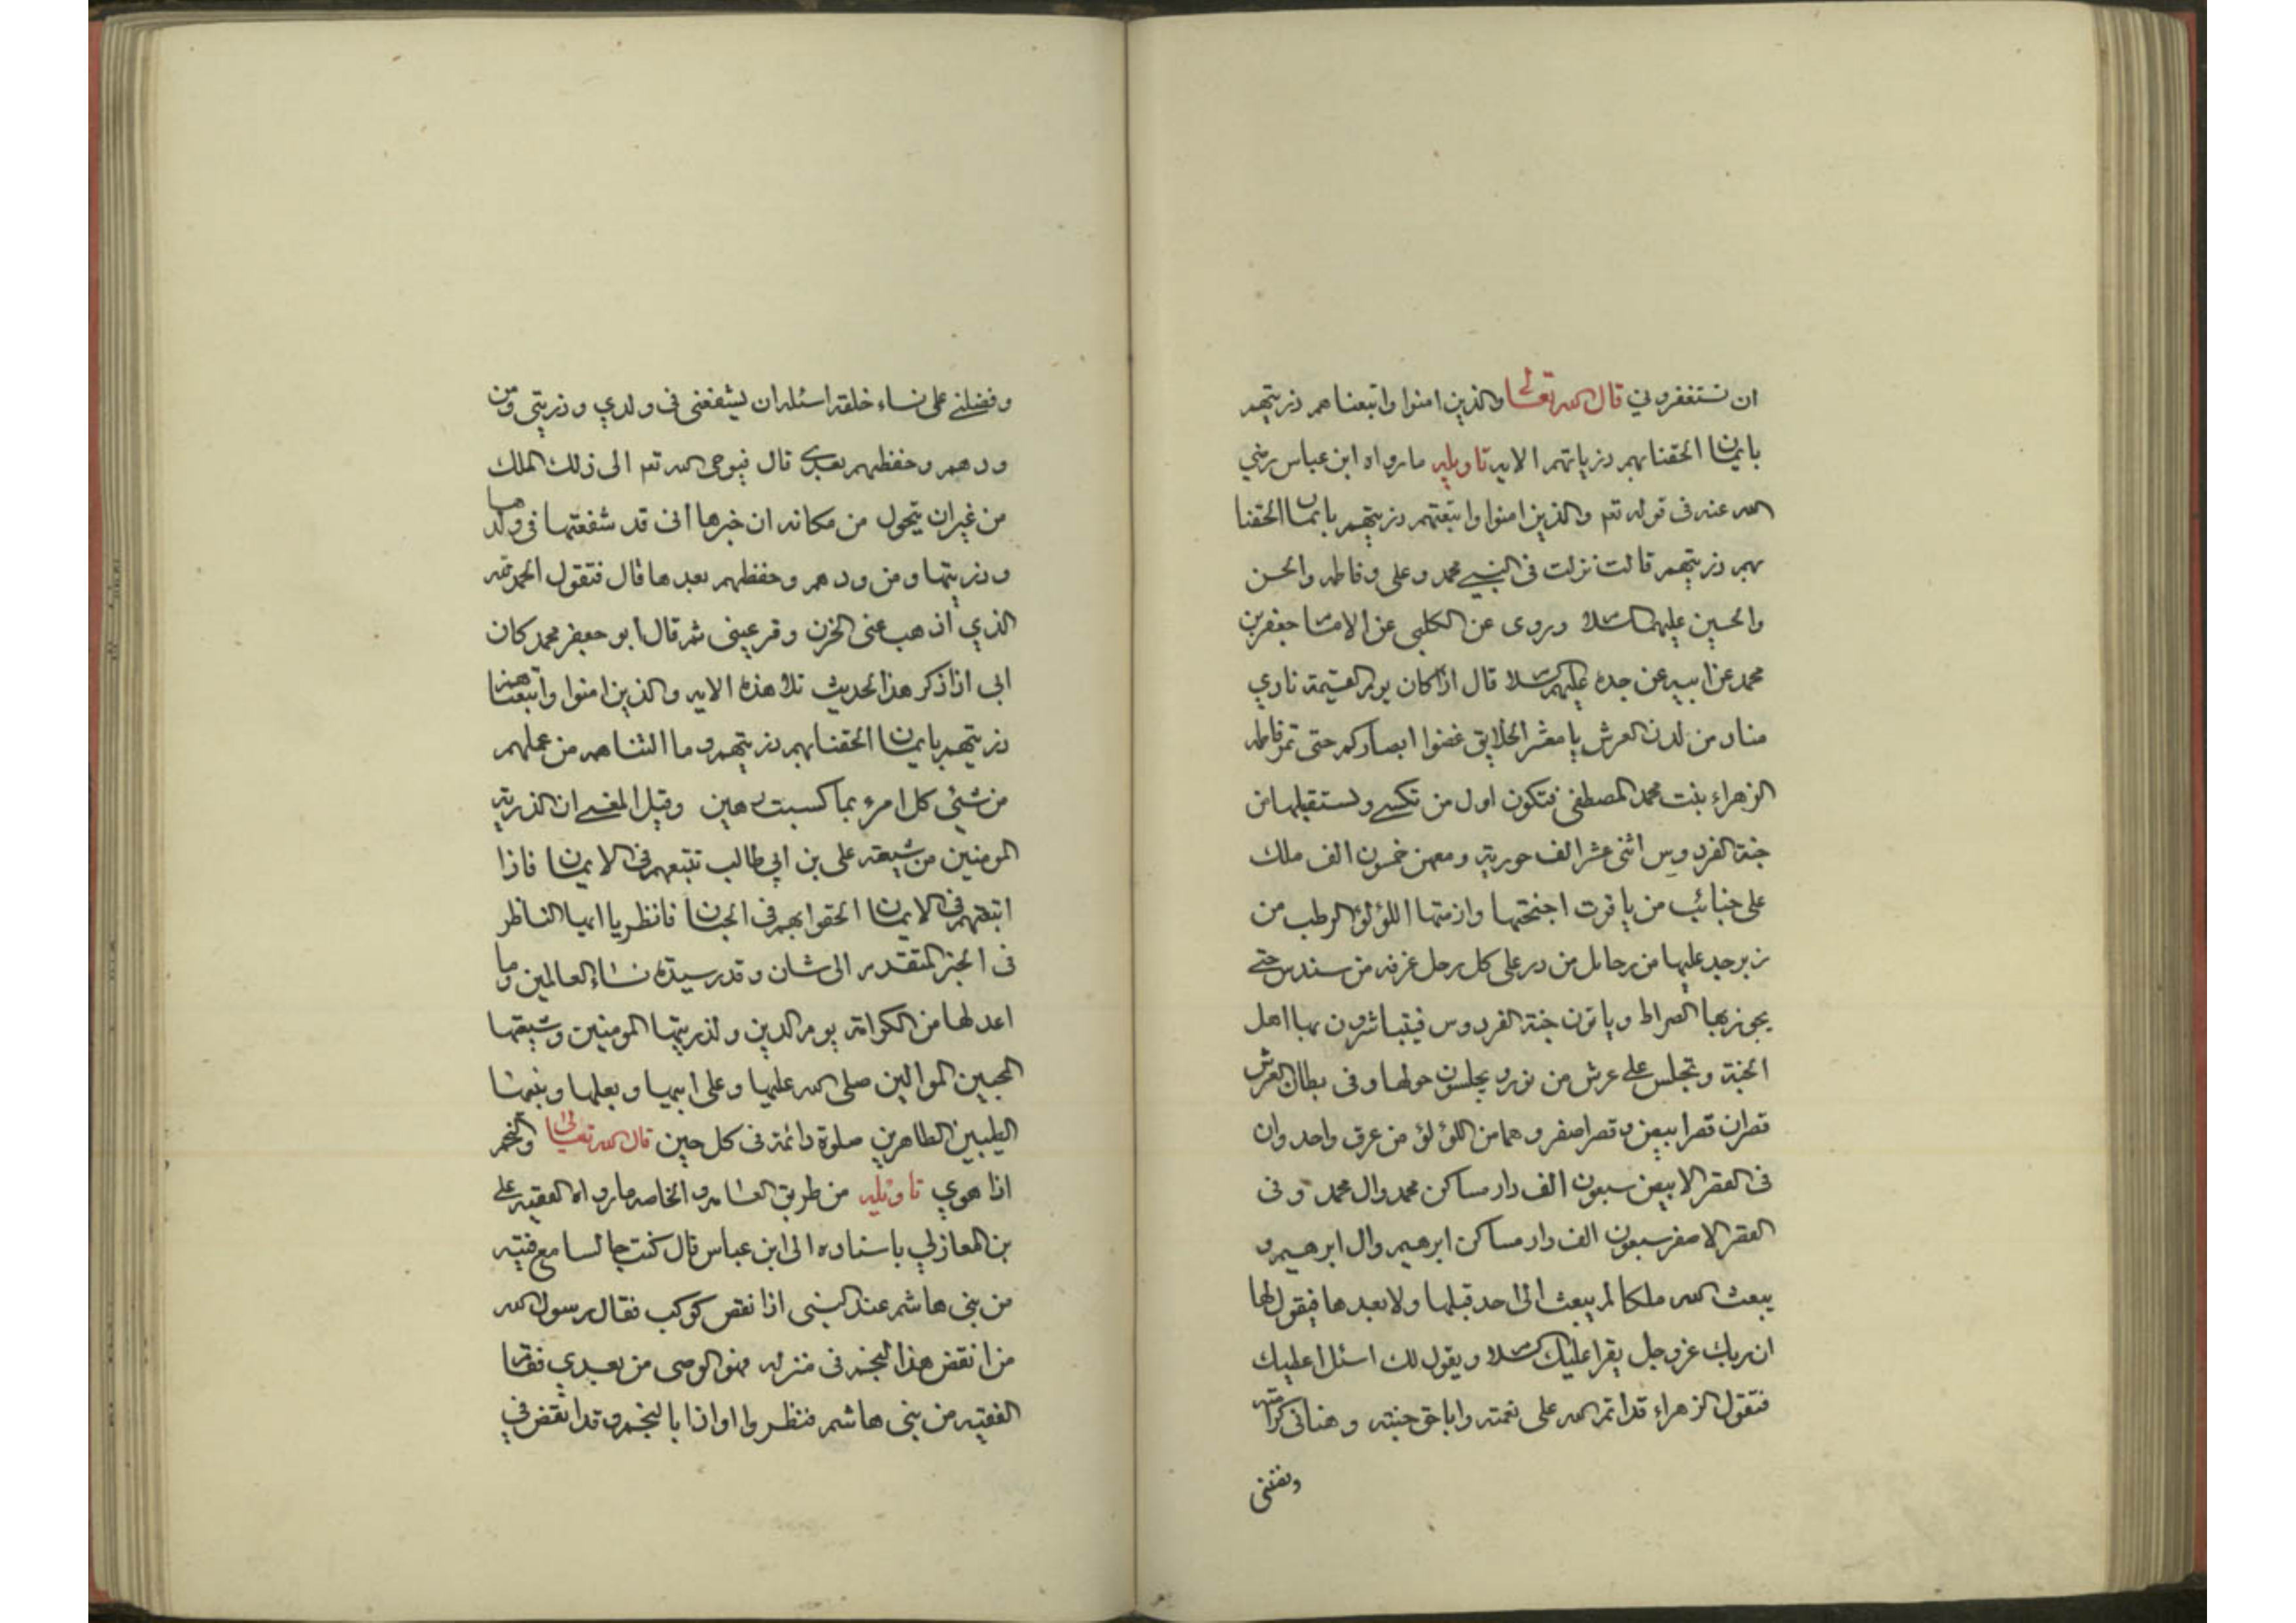 ان نستغفرو ني قال الله تعالى والذين امنوا واتبعناهم ذريتهم
بايمان الحقنا بهم ذرياتهم الايه تاويله ما رواه ابن عباس رضي
الله عنه في قوله تعم والذين امنوا واتبعتهم ذريتهم بايمان الحقنا
بهم ذريتهم قالت نزلت في النبي محمد وعلي وفاطمه والحسن
والحسين عليهم السلام وروى عن الكلبي عن الامام جعفر بن
محمد عن ابيه عن جده عليهم السلام قال اذا كان يوم القيمة نادي
مناد من لدن العرش يا معشر الخلايق غضوا ابصاركم حتى تمر فاطمه
الزهراء بنت محمد المصطفى فتكون اول من تكسى وتستقبلها من
جنة الفردوس اثنى عشر الف حورية ومعهن خمسون الف ملك
على جنائب من ياقوت اجنحتها وازمتها اللؤلؤ الرطب من
زبرجد عليها من رحايل من در على كل رحل غرفه من سندس حتى
يجوز بها الصراط وياتون جنة الفردوس فيتباشرون بها اهل
الجنة وتجلس على عرش من نور ويجلسون حولها وفى بطان العرش
قصران قصر ابيض وقصر اصفر وهما من اللؤلؤ من عرق واحد وان
فى القصر الابيض سبعون الف دار مساكن محمد وال محمد وفى
القصر الاصفر سبعون الف دار مساكن ابرهيم وال ابرهيم و
يبعث الله ملكا لم يبعث الى احد قبلها ولا بعدها فيقول لها
ان ربك عز وجل يقرا عليك السلام ويقول لك اسئل اعطيك
فتقول الزهراء قد اتم الله على نعمته واباحنى جنته وهنانى كرامته
وفضلنى
وفضلنى على نساء خلقه اسئله ان يشفعنى فى ولدي وذريتى ومن
ودهم وحفظهم بعدي قال فيوحى الله تعم الى ذلك الملك
من غير ان يتحول من مكانه ان خبرها انى قد شفعتها فى ولدها
وذريتها ومن ودهم وحفظهم بعدها قال فتقول الحمد لله
الذي اذهب عنى الحزن وقر عينى ثم قال ابو جعفر محمد كان
ابى اذا ذكر هذا الحديث تلا هذه الايه والذين امنوا واتبعناهم
ذريتهم بايمان الحقنا بهم ذريتهم وما التناهم من عملهم
من شيئى كل امرء بما كسبت رهين وقيل المعنى ان الذرية
المومنين من شيعة على بن ابى طالب تتبعهم فى الايمان فاذا
اتبعتهم فى الايمان الحقوا بهم فى الجنان فانظر يا ايها الناظر
فى الخبر المتقدم الى شان وقدر سيدة نساء العالمين وما
اعد لها من الكرامة يوم الدين ولذريتها المومنين وشيعتها
المحبين الموالين صلى الله عليها وعلى ابيها وبعلها وبنيها
الطيبين الطاهرين صلوة دائمة فى كل حين قال الله تعالى والنجم
اذا هوي تاويله من طريق العامه والخاصه ما رواه الفقيه على
بن المغازلي باسناده الى ابن عباس قال كنت جالسا مع فتيه
من بنى هاشم عند النبى اذا نقض كوكب فقال رسول الله
من انقض هذا النجم فى منزله فهو الوصى من بعدي فقام
الفتيه من بنى هاشم فنظروا واذا بالنجم وقد انقض في